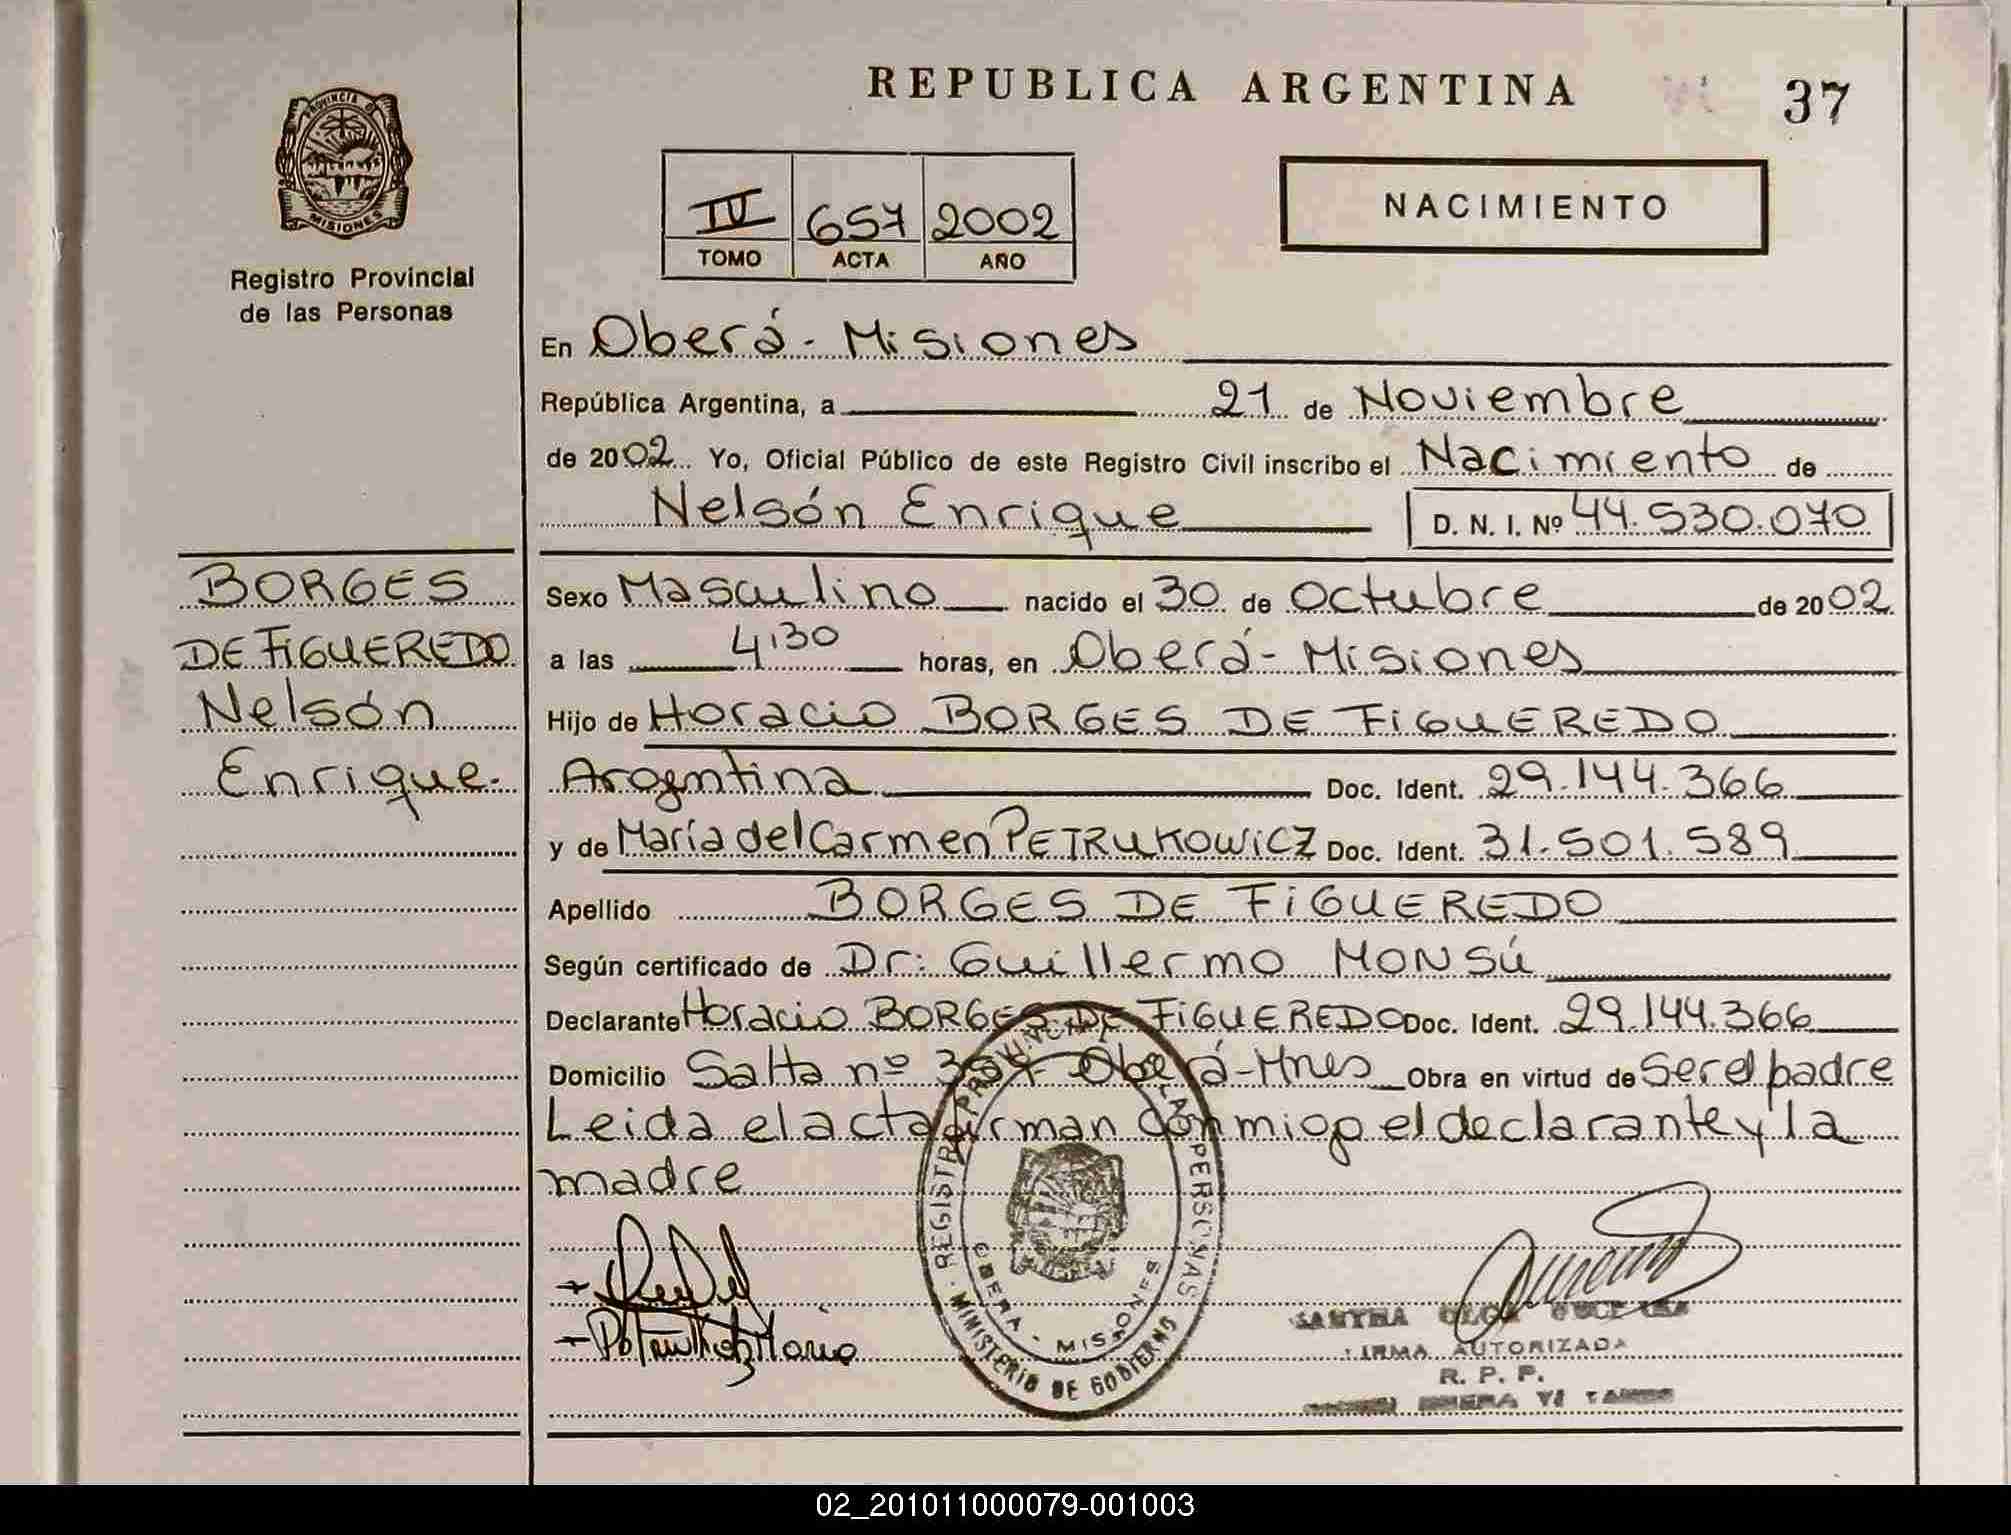 REPUBLICA ARGENTINA
37
PROVINCIA D
MISIONES
Registro Provincial
de las Personas
IV 657 2002
TOMO ACTA AÑO
NACIMIENTO
En Oberá - Misiones
República Argentina, a 21 de Noviembre
de 2002 Yo, Oficial Público de este Registro Civil inscribo el Nacimiento de
Nelsón Enrique D. N. I. Nº 44.530.070
BORGES
DE FIGUEREDO
Nelsón
Enrique.
Sexo Masculino nacido el 30 de Octubre de 2002
a las 4'30 horas, en Oberá - Misiones
Hijo de Horacio BORGES DE FIGUEREDO
Argentina Doc. Ident. 29.144.366
y de María del Carmen PETRUKOWICZ Doc. Ident. 31.501.589
Apellido BORGES DE FIGUEREDO
Según certificado de Dr: Guillermo MONSÚ
Declarante Horacio BORGES DE FIGUEREDO Doc. Ident. 29.144.366
Domicilio Salta nº Oberá - Mnes Obra en virtud de Ser el padre
Leida el acta firman conmigo el declarante y la
madre
REGISTRO PROVINCIAL LAS PERSONAS
OBERA - MISIONES
MINISTERIO DE GOBIERNO
María
OLGA
FIRMA AUTORIZADA
R. P. P.
02_201011000079-001003